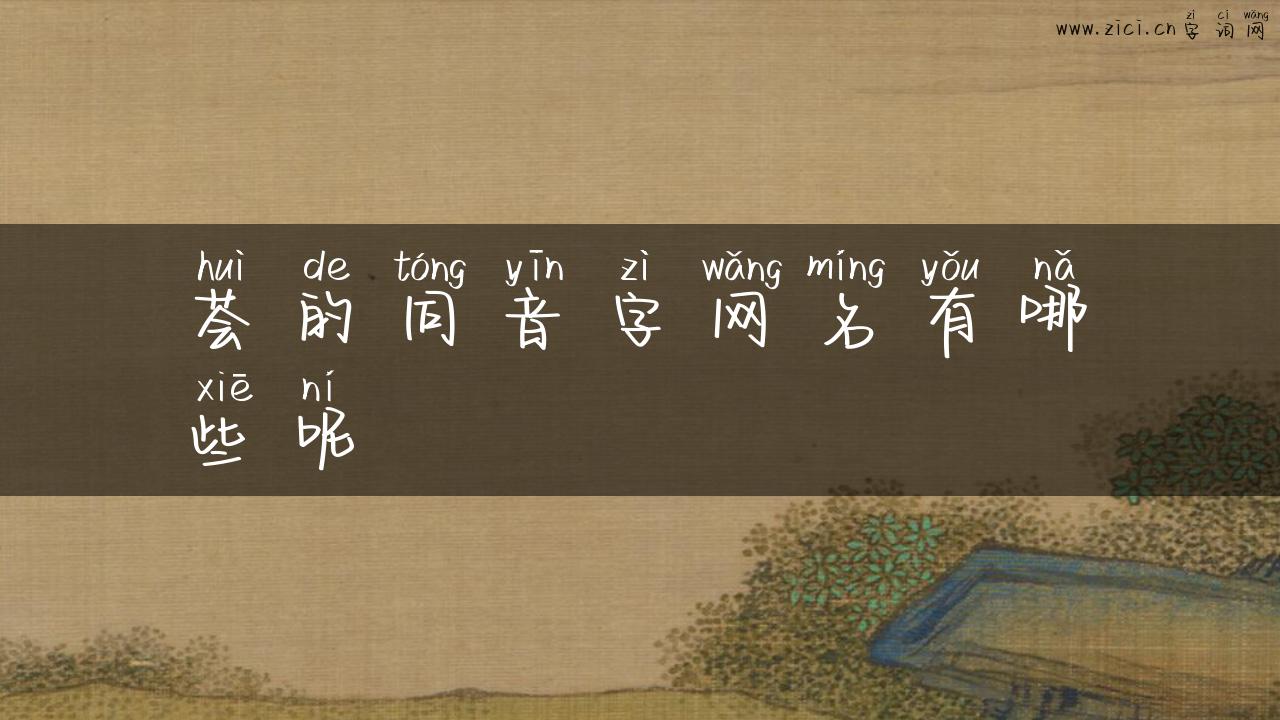 zì cí wǎng
www.zici.cn 字词网
huì de tóng yīn zì wǎng míng yǒu nǎ
荟的同音字网名有哪
xiē ní
些呢